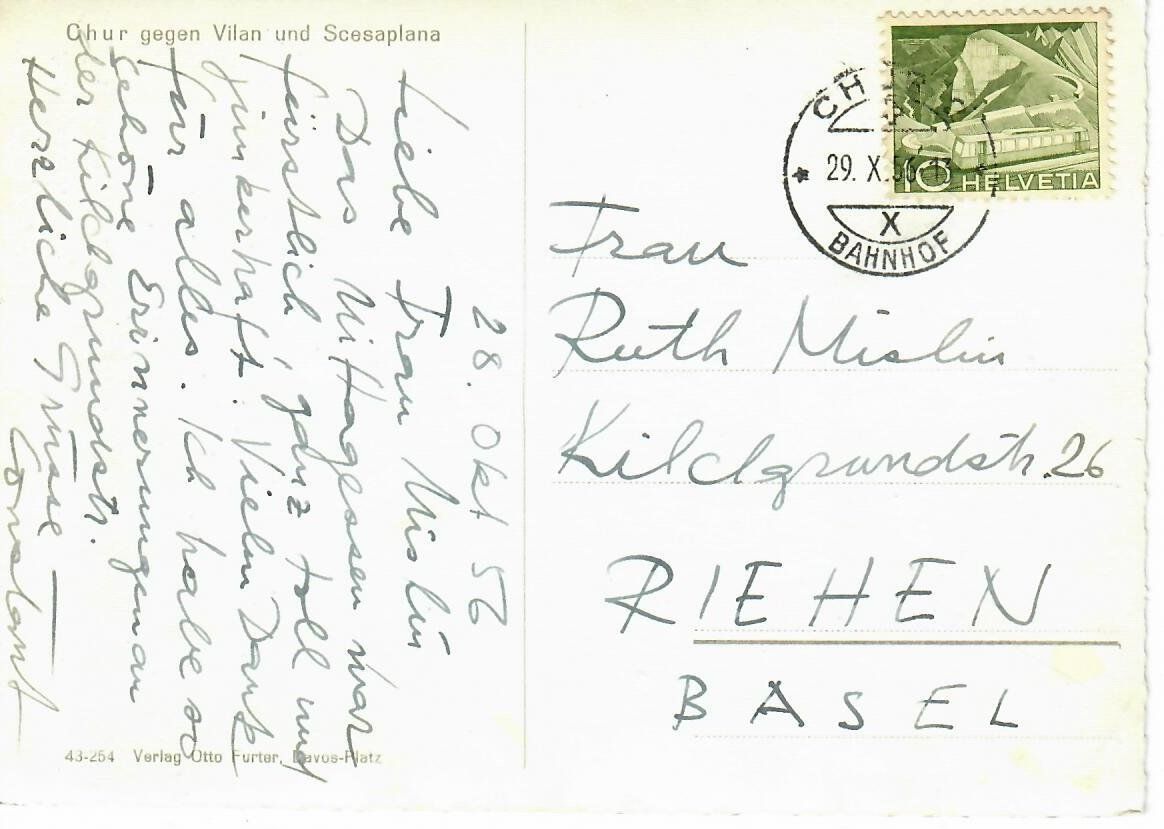 Chur gegen Vilan und Scesaplana
28. Okt 56
Liebe Frau Mislin
Das Mittagessen war
fürstlich, ganz toll und
junkerhaft. Vielen Dank
für alles. Ich habe so
schöne Erinnerungen an
der Kilchgrundstr.
Herzliche Grüsse
Constant
43-254 Verlag Otto Furter, Davos-Platz
CHUR
29. X. 56 - 13
X
BAHNHOF
10 HELVETIA
Frau
Ruth Mislin
Kilchgrundstr. 26
RIEHEN
BASEL